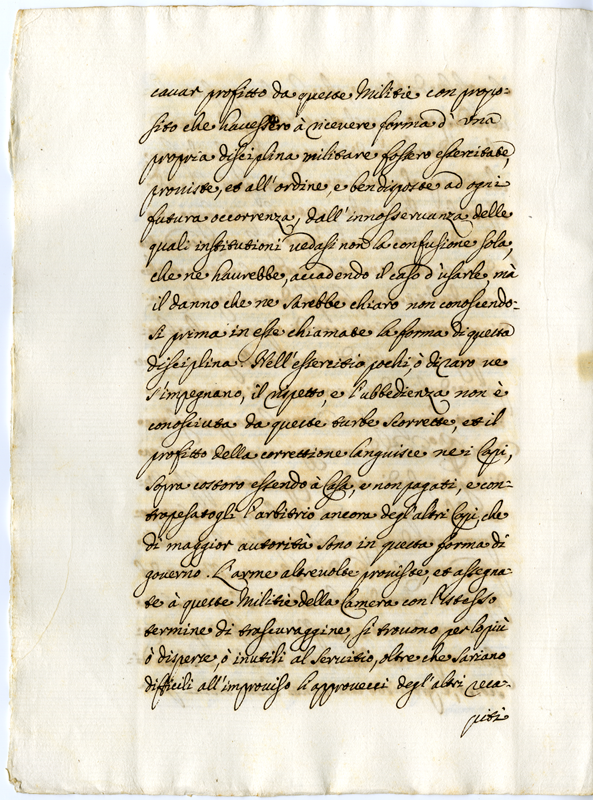 cavar profitto da queste Militie con propo-
sito che havessero à ricevere forma d'una
propria disciplina militare fossero essercitate,
proviste, et all'ordine, e ben disposte ad ogni
futura occorrenza, dall'innosservanza delle
quali institutioni vedasi non la confusione sola,
che ne haurebbe, accadendo il caso d'usarle, mà
il danno che ne sarebbe chiaro non conoscendo-
si prima in esse chiamate la forma di questa
disciplina. Nell'essercitio pochi ò di raro ve
s'impegnano, il rispetto, e l'ubbedienza non è
conosciuta da queste turbe scorrette, et il
profitto della correttione languisce ne i Capi,
sopra costoro essendo à Casa, e non pagati, e con-
trapesatogli l'arbitrio ancora degl'altri Capi, che
di maggior autorità sono in questa forma di
governo. L'arme altrevolte proviste, et assegna-
te à queste Militie della Camera con l'istesso
termine di trascuraggine, si trovono per lo più
ò disperse, ò inutili al servitio, oltre che sariano
difficili all'improviso li approvecci degl'altri reca-
piti